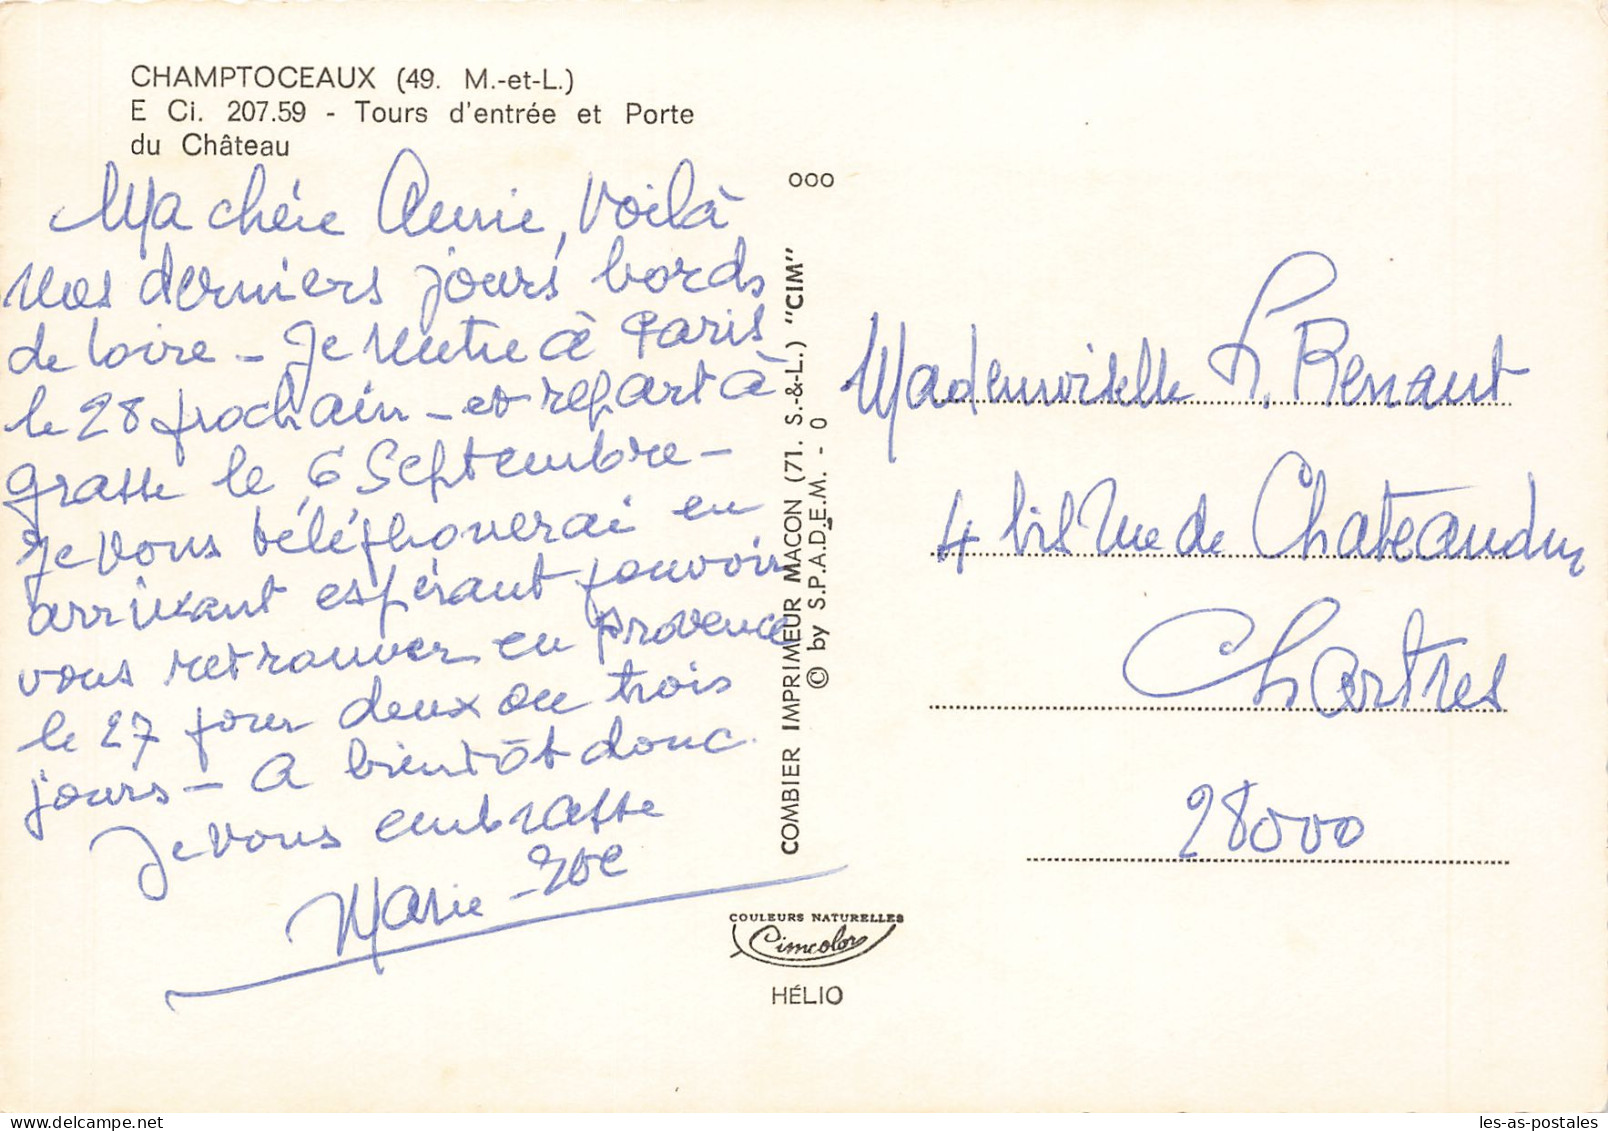 CHAMPTOCEAUX (49. M.-et-L.)
E Ci. 207.59 - Tours d'entrée et Porte
du Château
Ma chère Annie, Voilà
nos derniers jours bords
de Loire - Je rentre à Paris
le 28 prochain - et repart à
Grasse le 6 Septembre -
Je vous téléphonerai en
arrivant espérant pouvoir
vous retrouver en Provence
le 27 pour deux ou trois
jours - A bientôt donc.
Je vous embrasse
Marie-Zoé
ooo
COMBIER IMPRIMEUR MACON (71. S.-&-L.) "CIM"
© by S.P.A.D.E.M. - 0
COULEURS NATURELLES
Cimcolor
HÉLIO
Mademoiselle Renaut
4 bis Rue de Chateaudun
Chartres
28000
les-as-postales